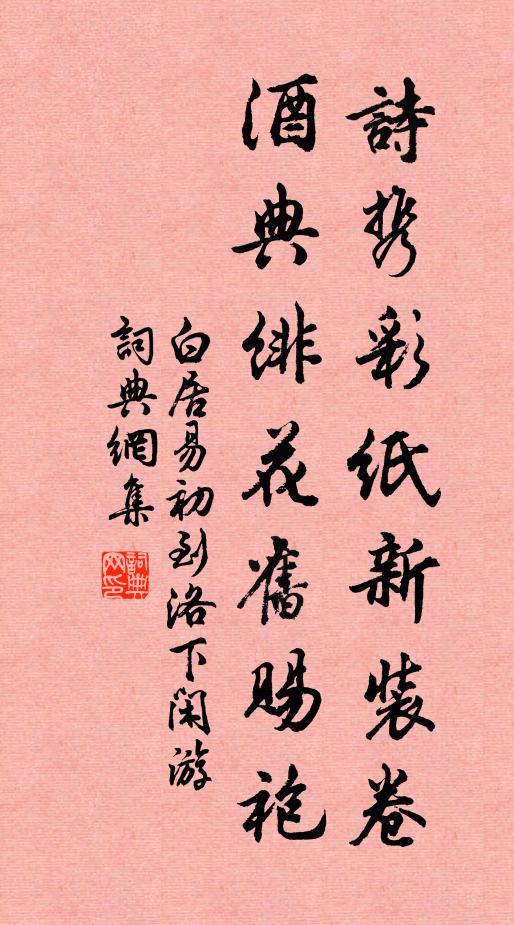 詩携彩紙新裝卷
酒典緋花舊賜袍
白居易初到洛下閑游
詞典網集
詞典网印